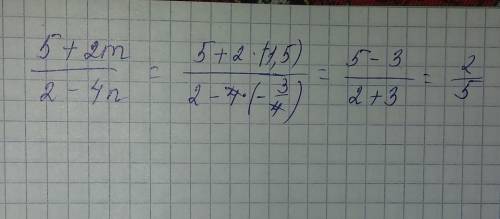 (5 + 2m)/(2 - 4n) = (5 + 2 · (-1,5))/(2 - 4 · (-3/4)) = (5 - 3)/(2 + 3) = 2/5